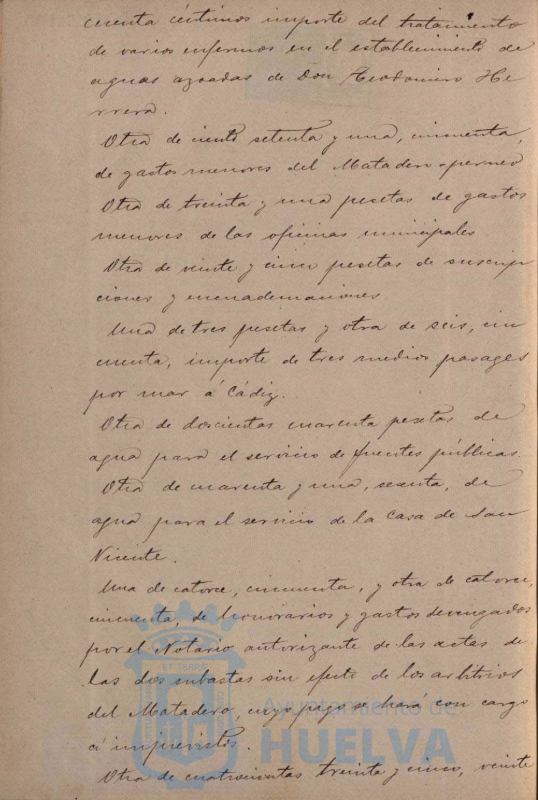 cuenta céntimos importe del tratamiento
de varios enfermos en el establecimiento de
aguas azoadas de Don Teodomiro He
rrera.
Otra de ciento setenta y una, cincuenta,
de gastos menores del Matadero
Otra de treinta y una pesetas de gastos
menores de las oficinas municipales.
Otra de veinte y cinco pesetas de suscrip
ciones y encuadernaciones
Una de tres pesetas y otra de seis, cin
cuenta, importe de tres medios pasages
por mar á Cádiz.
Otra de doscientas cuarenta pesetas de
agua para el servicio de fuentes públicas.
Otra de cuarenta y una, sesenta, de
agua para el servicio de la Casa de San
Vicente.
Una de catorce, cincuenta, y otra de catorce,
cincuenta, de honorarios y gastos devengados
por el Notario autorizante de las actas de
las dos subastas sin efecto de los arbitrios
del Matadero, cuyo pago se hará con cargo
á imprevistos.
Otra de cuatrocientas treinta y cinco, veinte
Ayuntamiento de
HUELVA